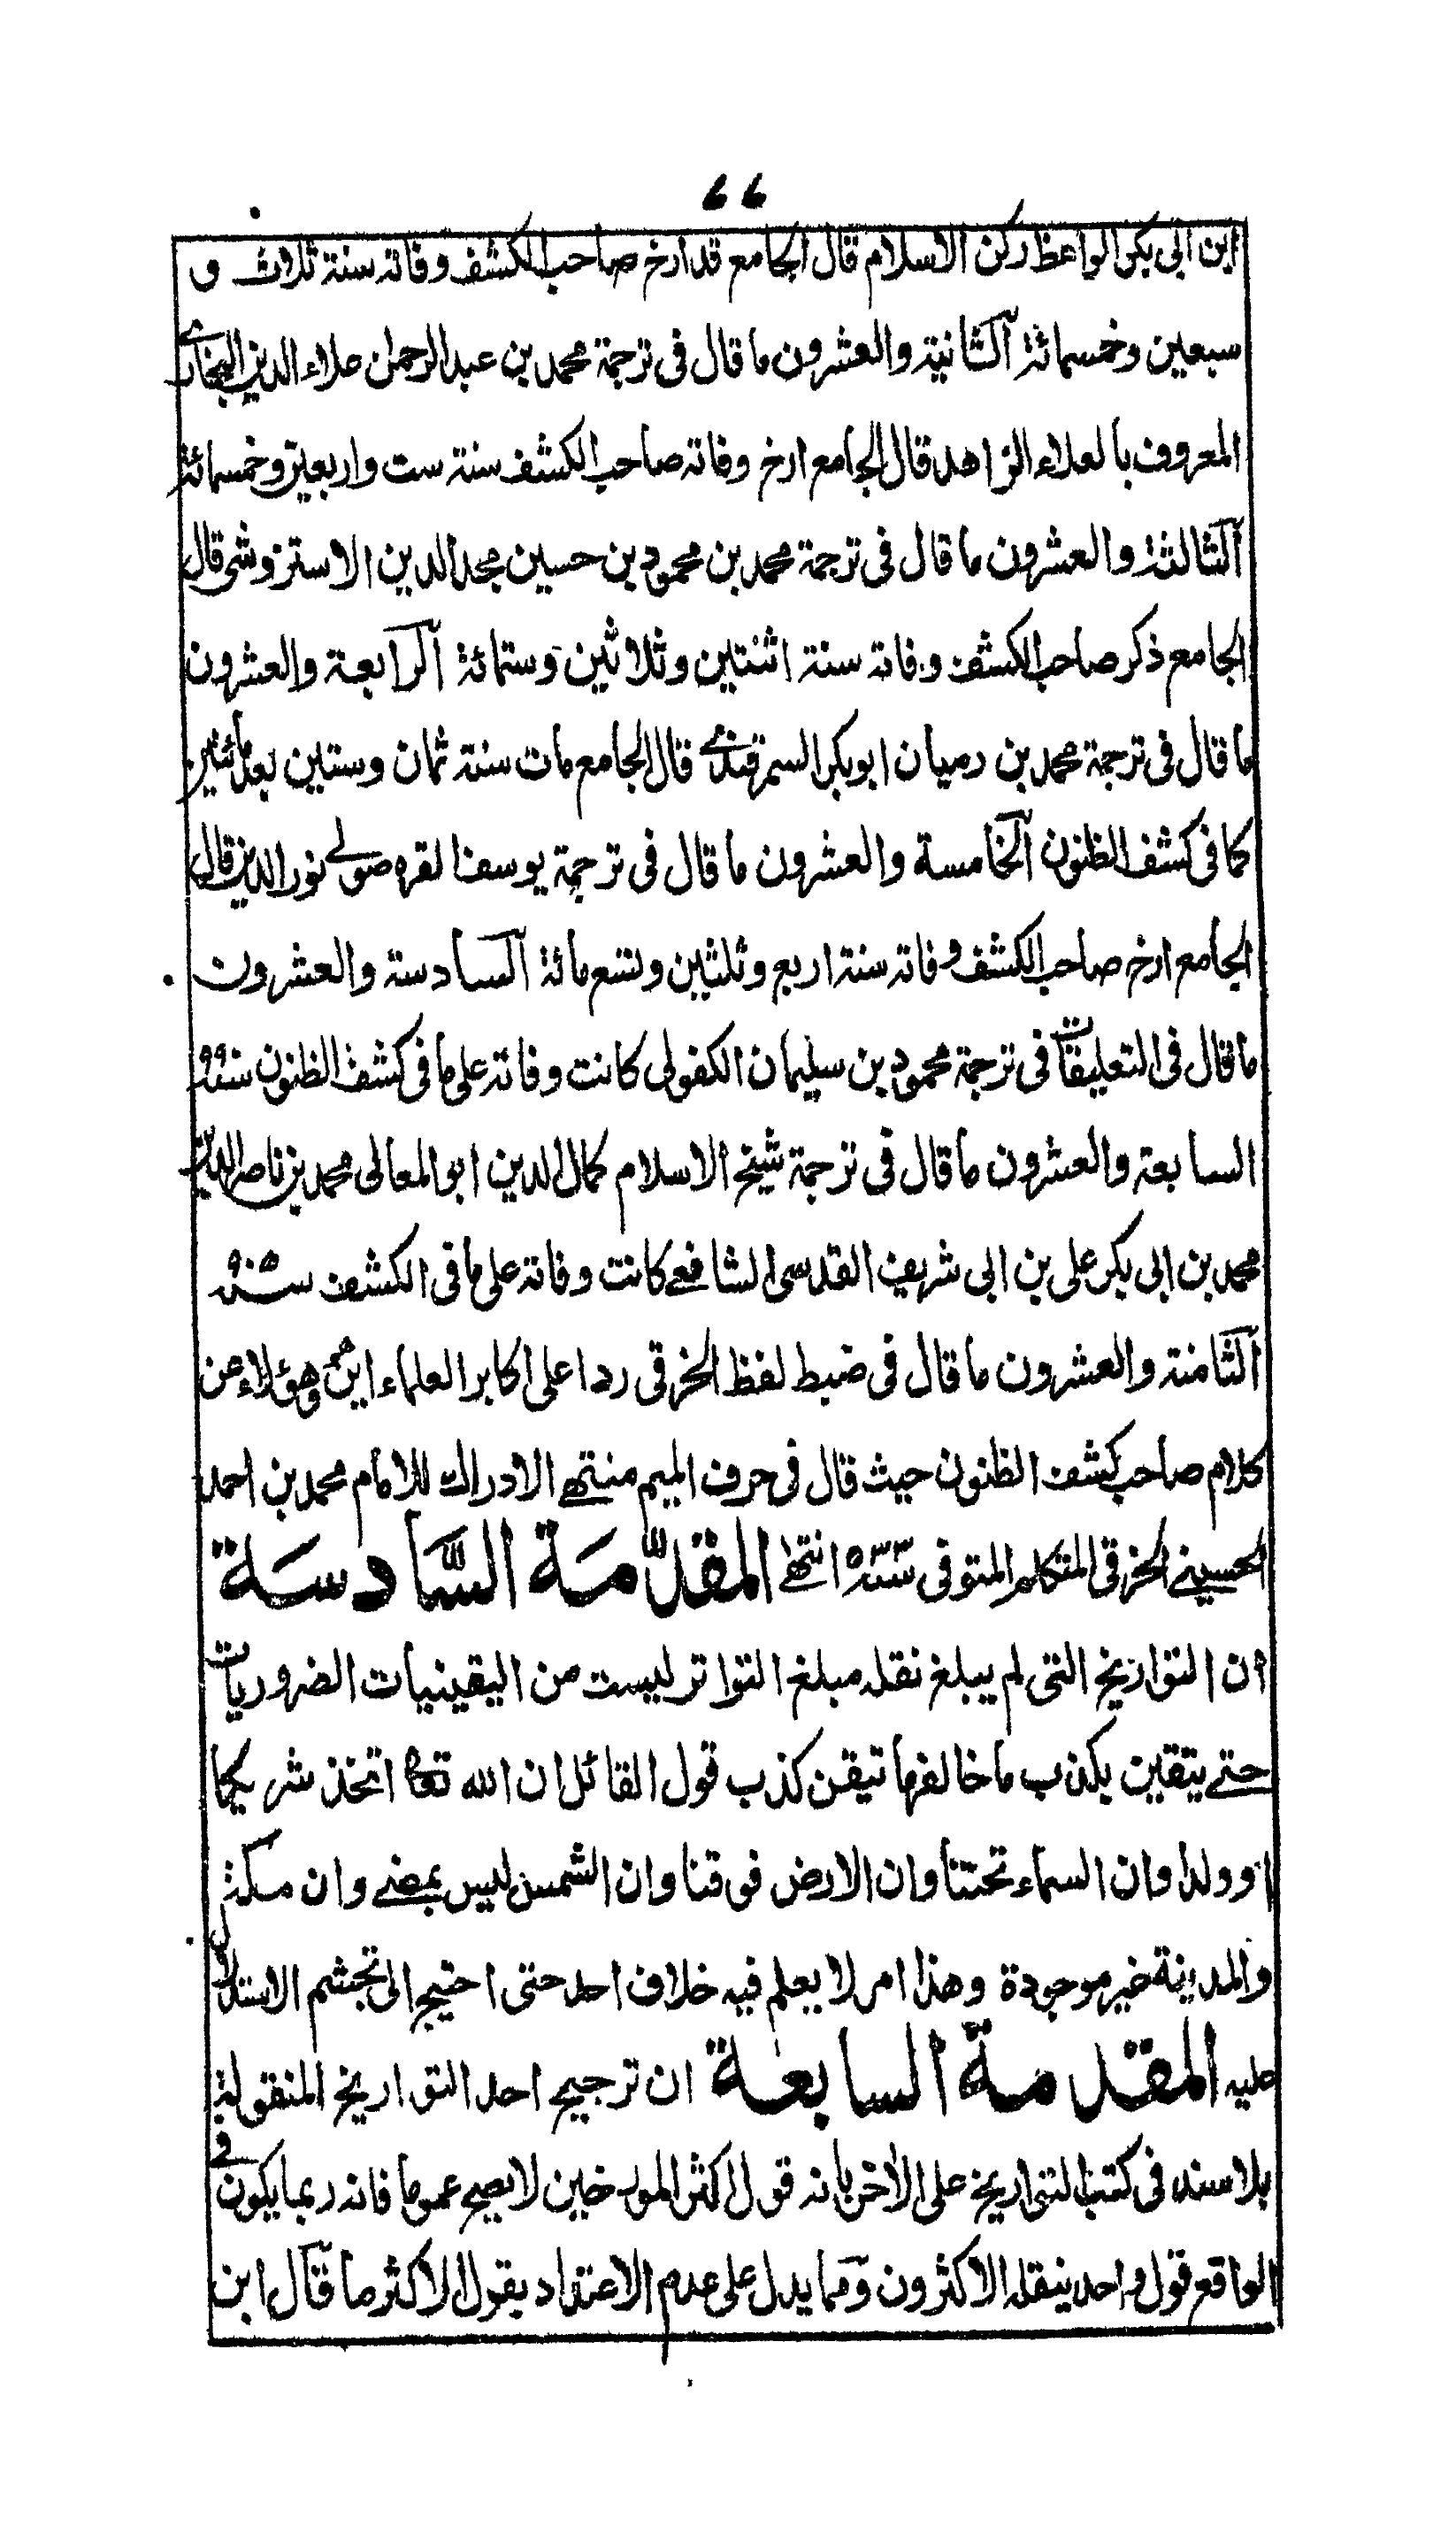 ۶۶
ابن ابی بکر الواعظ رکن الاسلام قال الجامع قد ارخ صاحب الکشف وفاته سنة ثلاث و
سبعین وخمسمائة الثانیة والعشرون ما قال فی ترجمة محمد بن عبد الرحمن علاء الدین البخاری
المعروف بالعلاء الزاهد قال الجامع ارخ وفاته صاحب الکشف سنة ست واربعین وخمسمائة
الثالثة والعشرون ما قال فی ترجمة محمد بن محمود بن حسین مجد الدین الاستروشی قال
الجامع ذکر صاحب الکشف وفاته سنة اثنتین وثلاثین وستمائة الرابعة والعشرون
ما قال فی ترجمة محمد بن رمیان ابوبکر السمرقندی قال الجامع مات سنة ثمان وستین بعد مائتین
کما فی کشف الظنون الخامسة والعشرون ما قال فی ترجمة یوسف القره صولی نور الدین قال
الجامع ارخ صاحب الکشف وفاته سنة اربع وثلثین وتسع مائة السادسة والعشرون
ما قال فی التعلیقات فی ترجمة محمود بن سلیمان الکفوی کانت وفاته علی ما فی کشف الظنون سنة ۹۹
السابعة والعشرون ما قال فی ترجمة شیخ الاسلام کمال الدین ابو المعالی محمد بن ناصر الدین
محمد بن ابی بکر علی بن ابی شریف القدسی الشافعی کانت وفاته علی ما فی الکشف سنة ۹۰۵
الثامنة والعشرون ما قال فی ضبط لفظ الخرقی ردا علی اکابر العلماء این هم وهؤلاء عن
کلام صاحب کشف الظنون حیث قال فی حرف المیم منتهی الادراک للامام محمد بن احمد
الحسینی الخرقی المتکلم المتوفی سنة ۵۳۳ انتهی المقدّمة السّادسة
ان التواریخ التی لم یبلغ نقله مبلغ التواتر لیست من الیقینیات الضروریات
حتی یتقین بکذب ما خالفها تیقن کذب قول القائل ان الله تعالی اتخذ شریکا
او ولدا وان السماء تحتنا وان الارض فوقنا وان الشمس لیس بمضی وان مکة
والمدینة غیر موجودة وهذا امر لا یعلم فیه خلاف احد حتی احتیج الی تجشم الاستدلال
علیه المقدمة السابعة ان ترجیح احد التواریخ المنقولة
بلا سند فی کتب التواریخ علی الاخر بانه قول اکثر المورخین لا یصح عموما فانه ربما یکون فی
الواقع قول واحد ینقله الاکثرون ومما یدل علی عدم الاعتداد بقول الاکثر ما قال ابن